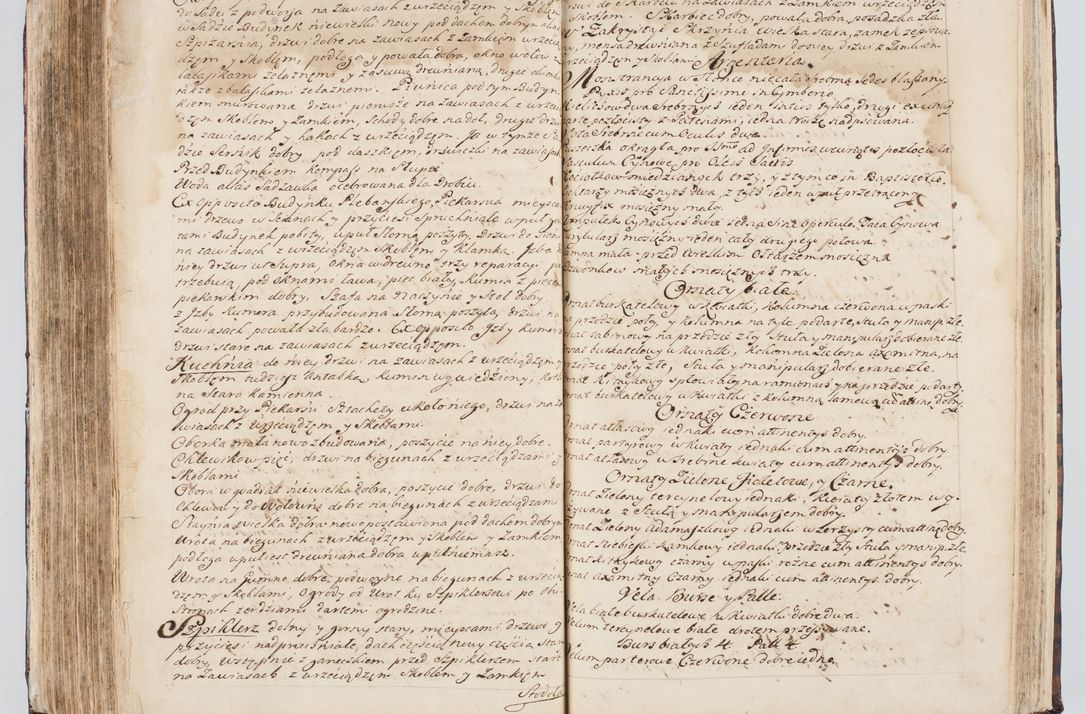 do Sadu z podworza na zawiasach z wrzeciądzem y Skoblem
w Sadzie Budynek niewielki nowy pod dachem dobrym alias
Szpizarnia, drzwi dobre na zawiasach z Zamkiem wrzecią
dzem y Skoblem, podłoga y powała dobra, okno wołow z
balaskami zelaznemi y zasuwą drewnianą, drugie
także z balaskami zelaznemi. Piwnica pod tym Budyn
kiem murowana drzwi pierwsze na zawiasach z wrzecią
dzem Skoblem y Zamkiem, Schody dobre na doł, drugie drzwi
na zawiasach y hakach z wrzeciądzem. Ja w tymze Sa
dzie Sernik dobry pod daszkiem, drzwiczki na zawiasach
Przed Budynkiem kompass na Słupie
Woda alias Sadzawka ocebrowana dla Drobiu.
Ex opposito Budynku Plebańskiego, Piekarnia miejsca
mi drzewo w Scianach y przyciesi Spruchniałe w puł go
tami Budynek pobity, w puł Słomą poszyty. Drzwi do Sieni
na zawiasach z wrzeciądzem Skoblem y Klamką. Izba
niey drzwi ut Supra, okna w drewno trzy reparacyi
trzebują, pod oknami Ława, piec biały, Kumin z piecem
piekarskim dobry, Szafa na Naczynie y Stoł dobry
z Izby Kumora przybudowana Słomą poszyta, drzwi na
zawiasach powała zła bardzo. Ex opposito Izby kumora
drzwi stare na zawiasach z wrzeciądzem.
Kuchnia do niey drzwi na zawiasach z wrzeciądzem y
Skoblem tudziesz antabka, kumin wywiedziony,
na Stara kamienna.
Ogrod przy Piekarni Sztachety wkoło niego, drzwi na za
wiasach z wrzeciądzem y Skoblami.
Oborka mała nowo zbudowana, poszycie na niey dobre.
Chlewikow pięć, drzwi na biegunach z wrzeciądzami y
Skoblami
Obora w quadrat niewielka dobra, poszycie dobre, drzwi do
Chlewa y do Wołowni dobre na biegunach z wrzeciądzami
Staynia wielka dobra nowo postawiona pod dachem dobrym
Wrota na biegunach z wrzeciądzem y Skoblem y Zamkiem
podłoga w puł iest drewniana dobra w puł niemasz.
Wrota na gumno dobre, podwoyne na biegunach z wrzecią
dzem y Skoblami, Ogrody od Wrot ku Szpiklerzowi po obu
Stronach zerdziami dartemi ogrodzone.
Szpiklerz dolny y gorny stary, mieyscami drzewo y
przyciesi nadpruchniałe, dach częścią nowy częścią stary
dobry, Wstęp nie z ganeczkiem przed Szpiklerzem stare
na Zawiasach z wrzeciądzem Skoblem y Zamkiem
Stodoła
Skoblem. Skarbiec dobry, powała dobra posadzka zła
w Zakrystyi Skrzynia wielka stara, zamek zepsowa
ny, mensa drewniana z Szufladami do niey drzwi z Zamkiem
wrzeciądzem y Skoblami Argenteria.
Monstrancya w Słońce niecała srebrna Sedes blaszany.
Pyxis pro Sanctissimo in Cymborio
Kielichow dwa srebrnych ieden intus tylko, drugi ex utraq
parte pozłocisty z Patenami, iedna trochę nadpsowana.
Vota Srebrne cum Oculis dwa.
Puszeczka okrągła pro Ssmo ad Infirmos wewnątrz pozłocista
Vasculum Cynowe pro Oleis Sacris
Kociołkow miedzianych trzy, y z tym co in Baptisterio
Lichtarzy mosięznych dwa, z tych ieden w puł przetrącony
Krucyfix mosięzny mały.
Ampułek Cynowych dwie iedna sine operculo. Taca Cynowa
Turybularz mosięzny ieden cały drugiego połowa.
Lampa mała przed Wielkim Ołtarzem mosięzna
Dzwonkow małych mosięznych trzy.
Ornaty białe.
Ornat burkatelowy w kwiatki, kolumna czerwona w paski
na przedzie poły, y kolumna na tyle podarte, Stuła y manip: złe.
Ornat tabinowy na przedzie zły Stuła y manipularz dobierane złe.
Ornat burkatelowy w kwiatki, kolumna zielona axamitna, na
przedzie poły złe, Stuła y manipularz dobierane złe.
Ornat kitaykowy spłowiały na ramionach y na przedzie podarty
Ornat burkatelowy w kwiatki z kolumną lamową cum attin: dobry
Ornaty Czerwone
Ornat atłasowy iednaki cum attinentys dobry.
Ornat partyrowy w kwiaty iednaki cum attinentys dobry
Ornat atłasowy w srebrne kwiaty cum attinentys dobry.
Ornaty Zielone, Fioletowe, y Czarne.
Ornat Zielony tercynelowy iednaki, kwiaty złotem wy
szywane z Stułą y manipularzem dobry.
Ornat Zielony adamaszkowy iednaki w Lerzysty cum attin: dobry
Ornat niebieski kamkowy iednaki, przedzie zły Stuła y manip: złe.
Ornat kitaykowy czarny w paski rozne cum attinentys dobry.
Ornat axamitny Czarny iednaki cum attinentys dobry.
Vela Burse y Palle.
Vela białe burkatelowe w kwiatki dobre dwa.
Velum tercynelowe białe złotem przeszywane.
Burs białych 4 Pall 4
Velum parterowe Czerwone dobre iedno